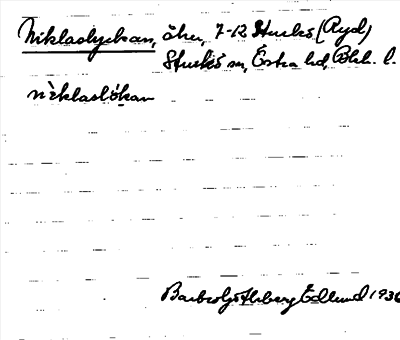 Niklaslyckan, åker, 7-12 Sturkö (Ryd)
Sturkö sn, Östra hd, Blek. l.
niklaslökan
Barbro Götlberg Edlund 1936